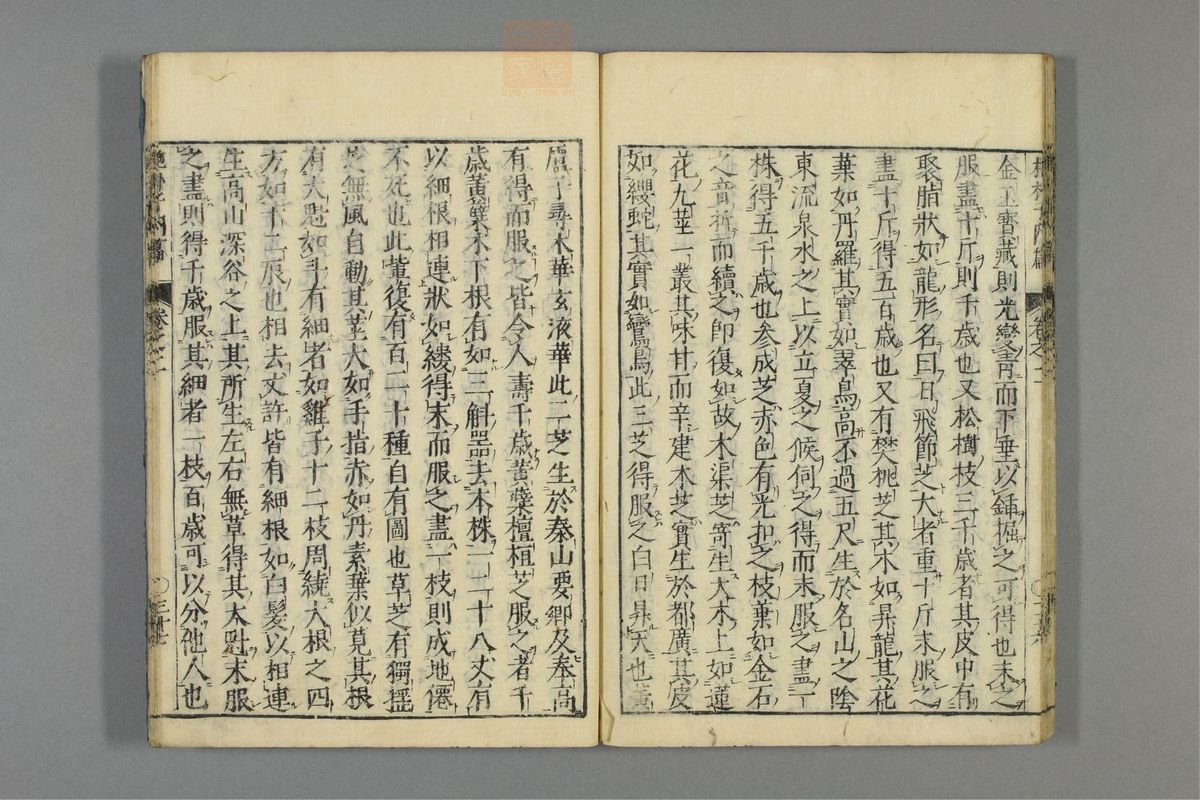 金玉寶藏則光變青而下垂以鍤掘之可得也末之
服盡十斤則千歲也又松樹枝三千歲者其皮中有
聚脂狀如龍形名曰日飛節芝大者重十斤末服之
盡十斤得五百歲也又有樊桃芝其木如昇龍其花
葉如丹羅其實如翠鳥高不過五尺生於名山之陰
東流泉水之上以立夏之候伺之得而末服之盡一
株得五千歲也參成芝赤色有光扣之枝葉如金石
之音折而續之即復如故木渠芝寄生大木上如蓮
花九莖一叢其味甘而辛建木芝實生於都廣其皮
如纓蛇其實如鸞鳥此三芝得服之白日昇天也黃
盧子尋木華玄液華此二芝生於泰山要鄉及奉高
有得而服之皆令人壽千歲黃蘗檀桓芝服之者千
歲黃蘗木下根有如三斛器去本株一二十八丈有
以細根相連狀如縷得末而服之盡一枝則成地僊
不死也此輩復有百二十種自有圖也草芝有獨搖
芝無風自動其莖大如手指赤如丹素葉似莧其根
有大魁如斗有細者如雞子十二枝周繞大根之四
方如十二辰也相去丈許皆有細根如白髮以相連
生高山深谷之上其所生左右無草得其大魁末服
之盡則得千歲服其細者一枝百歲可以分他人也
抱朴子內篇 卷之二